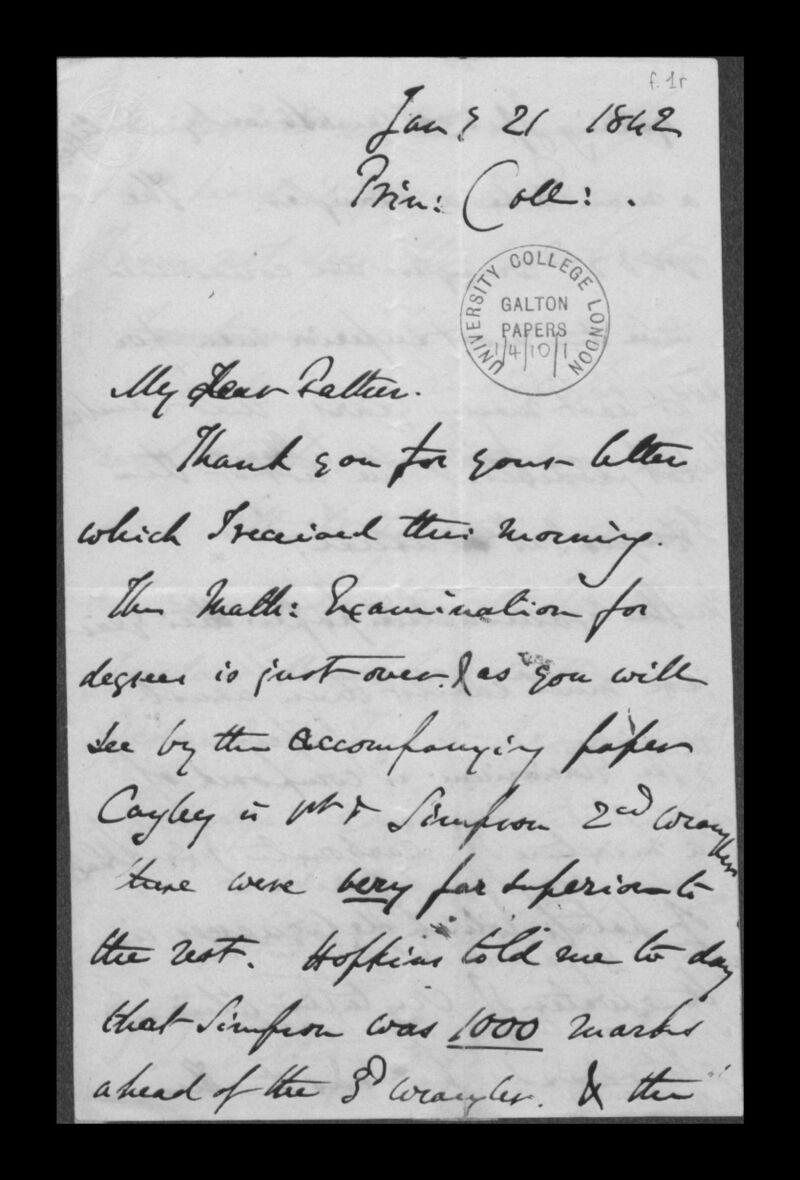 f. 1r
Jany 21 1842
Trin: Coll: .
UNIVERSITY COLLEGE LONDON
GALTON
PAPERS
1/4/10/1
My Dear Father.
Thank you for your letter
which I received this morning.
The Math: Examination for
degrees is just over. & as you will
see by the accompanying paper
Cayley is 1st & Simpson 2nd wrangler
these were very far superior to
the rest. Hopkins told me to day
that Simpson was 1000 marks
ahead of the 3d wrangler. & the